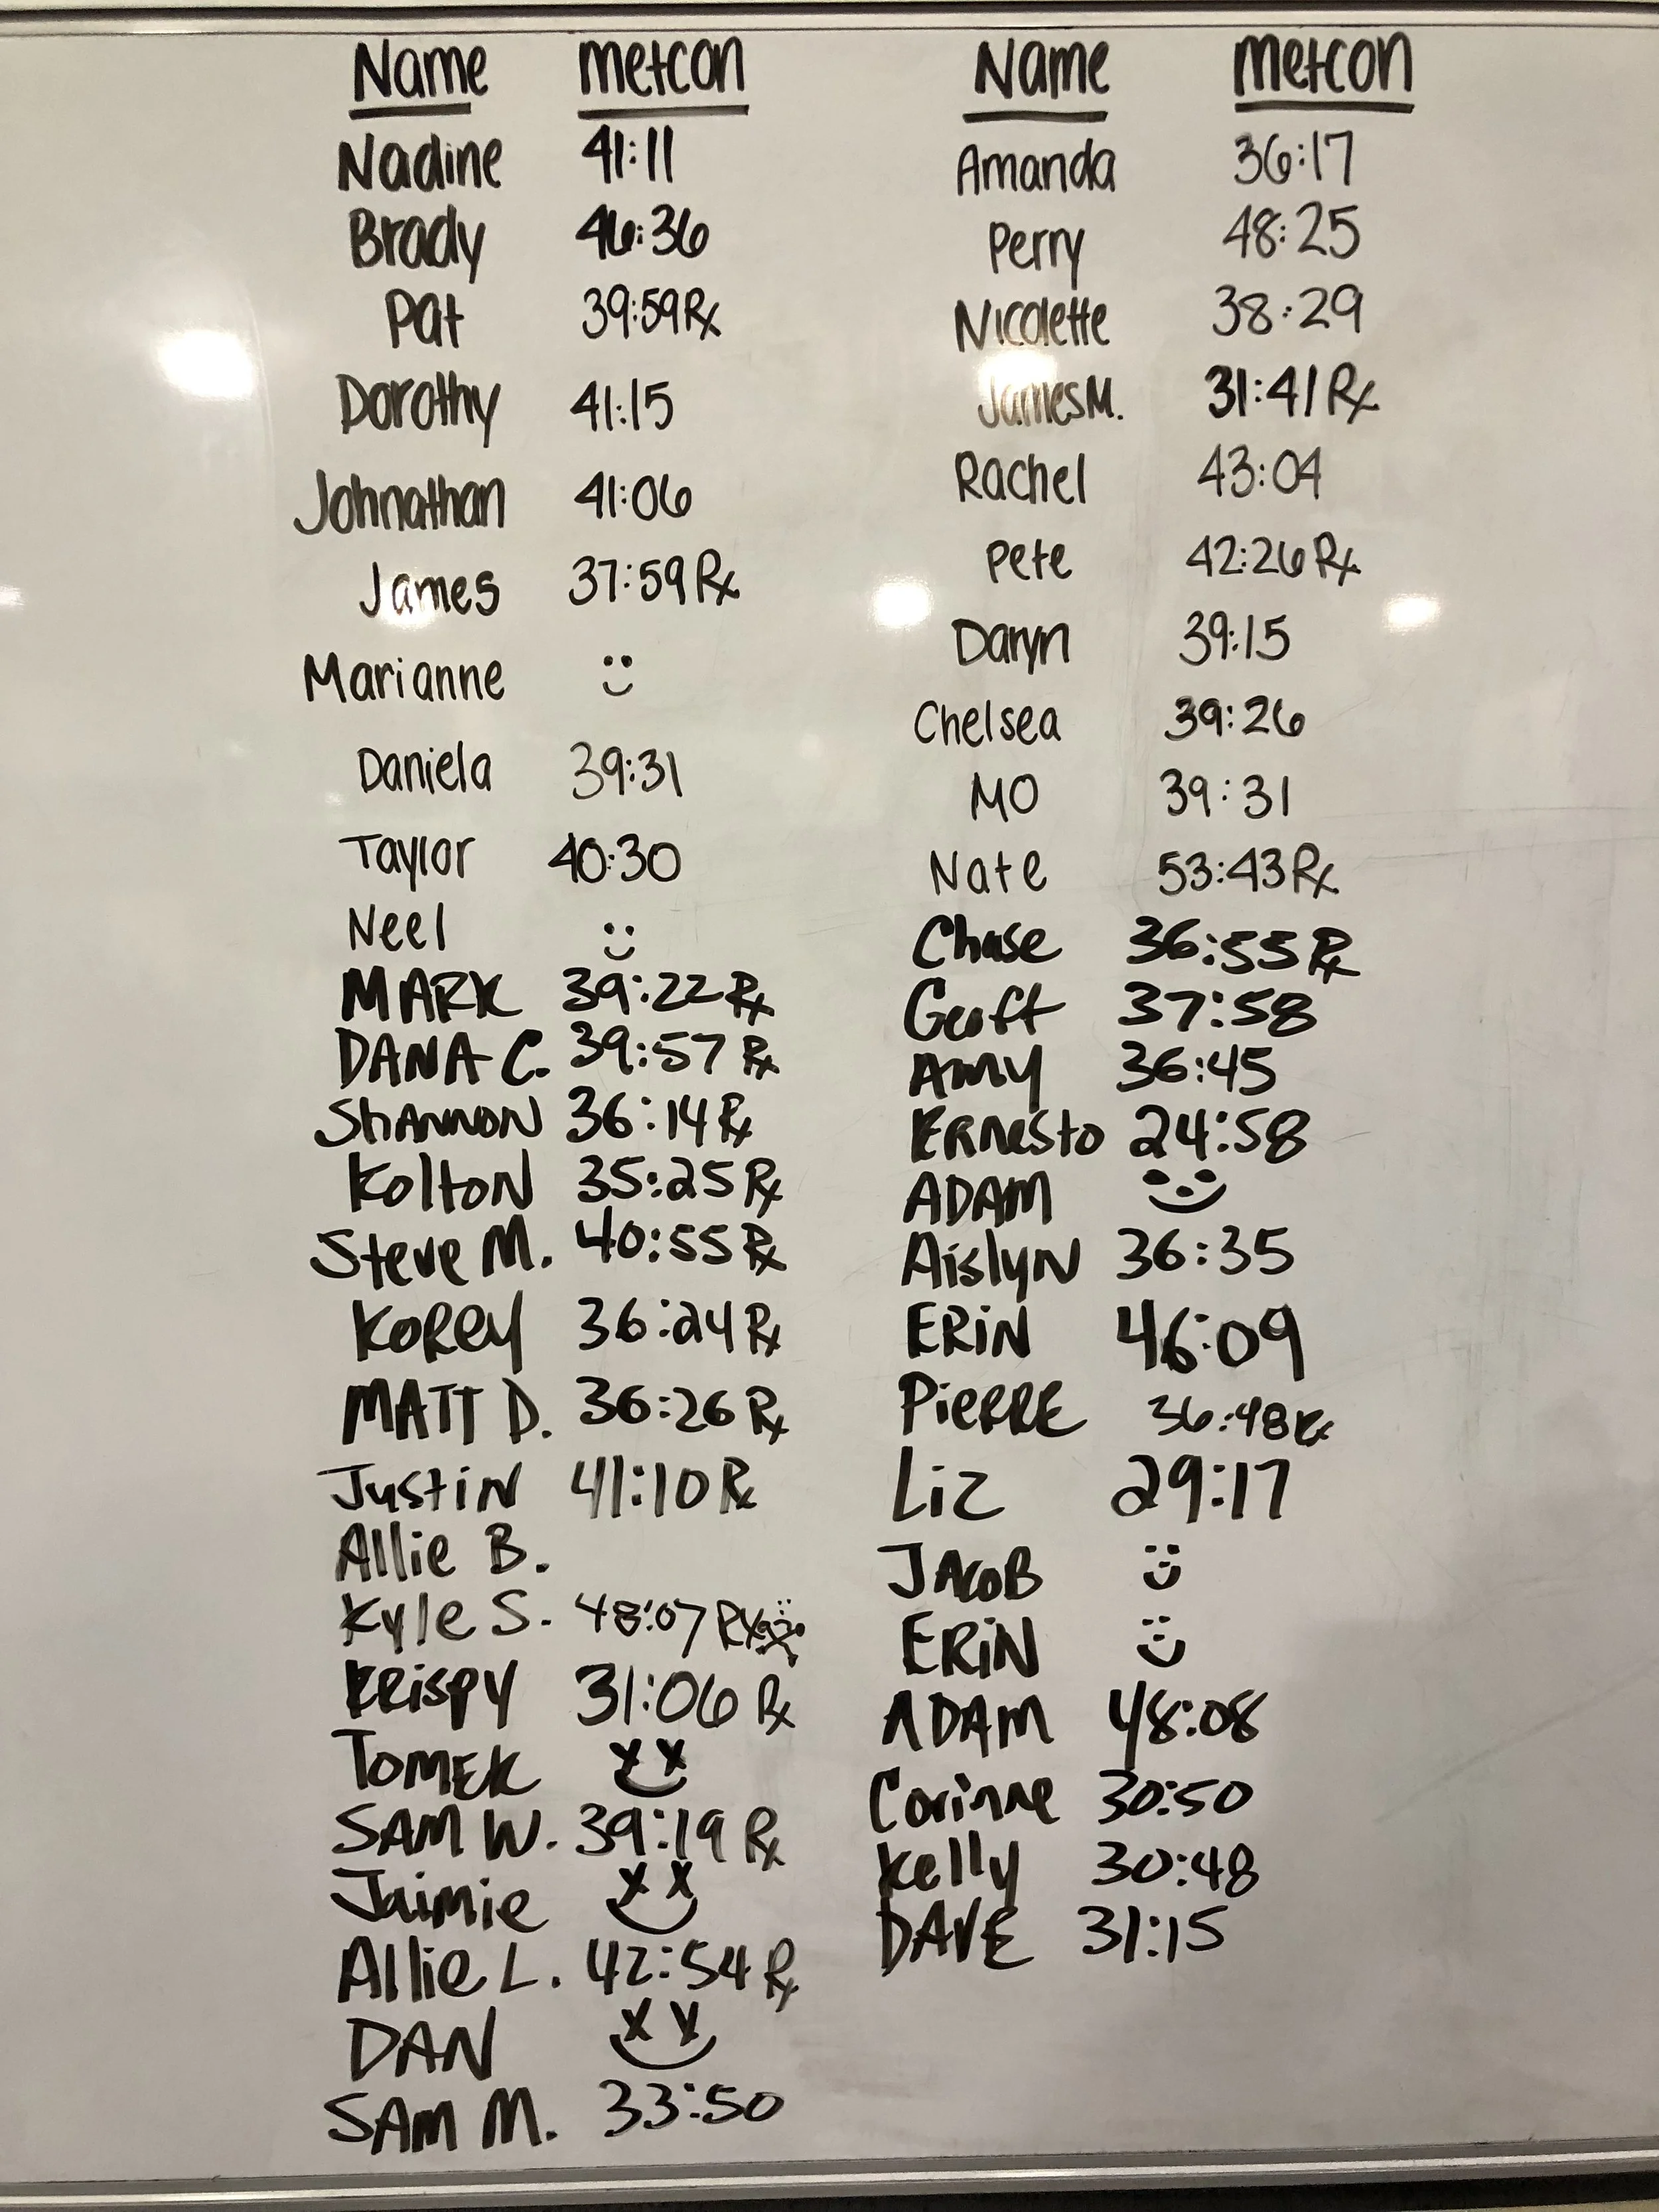 Name metcon
Nadine 41:11
Brady 46:36
Pat 39:59 Rx
Dorothy 41:15
Johnathan 41:06
James 37:59 Rx
Marianne
Daniela 39:31
Taylor 40:30
Neel
MARK 39:22 Rx
DANA C. 39:57 Rx
SHANNON 36:14 Rx
Kolton 35:25 Rx
Steve M. 40:55 Rx
Korey 36:24 Rx
MATT D. 36:26 Rx
Justin 41:10 Rx
Allie B.
Kyle S. 48:07 RX
Krispy 31:06 Rx
TOMEK
SAM W. 39:19 Rx
Jaimie
Allie L. 42:54 Rx
DAN
SAM M. 33:50
Name metcon
Amanda 36:17
Perry 48:25
Nicolette 38:29
James M. 31:41 Rx
Rachel 43:04
Pete 42:26 Rx
Daryn 39:15
Chelsea 39:26
MO 39:31
Nate 53:43 Rx
Chase 36:55 Rx
Geoff 37:58
Amy 36:45
Ernesto 24:58
ADAM
Aislyn 36:35
ERiN 46:09
PiERRE 36:48 Rx
Liz 29:17
JACOB
ERiN
ADAM 48:08
Corinne 30:50
Kelly 30:48
DAVE 31:15